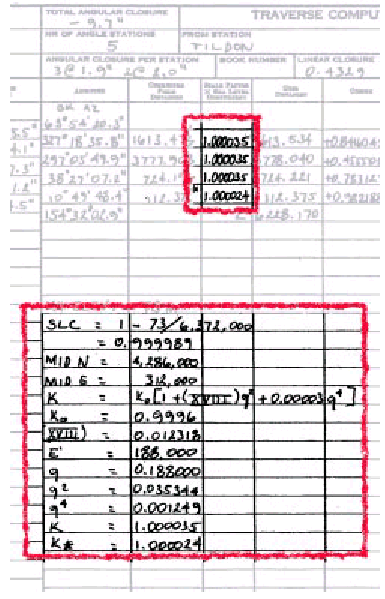 TOTAL ANGULAR CLOSURE
TRAVERSE COMPU
- 9.7"
NR OF ANGLE STATIONS
FROM STATION
5
TILDON
ANGULAR CLOSURE PER STATION
BOOK NUMBER
LINEAR CLOSURE
3@1.9" 2@2.0"
0.4329
BK AZ
63°54'20.3"
5.5" 327°18'35.8" 1613.4 1.000035 613.534 +0.84604
4.1" 297°03'49.9" 3777.90 1.000035 778.040
7.3" 38°27'07.2" 724.1 1.000035 724.221 +0.78312
1.2" 10°49'48.4" 112.37 * 1.000024 112.375 +0.98218
4.5" 154°32'02.9" 6228.170
SLC = 1 - 73/6,372,000
= 0.999989
MID N = 4,286,000
MID E = 312,000
K = K₀[1+(XVIII)q² + 0.00003q⁴]
K₀ = 0.9996
XVIII) = 0.012318
E' = 188,000
q = 0.188000
q² = 0.035344
q⁴ = 0.001249
K = 1.000035
K* = 1.000024